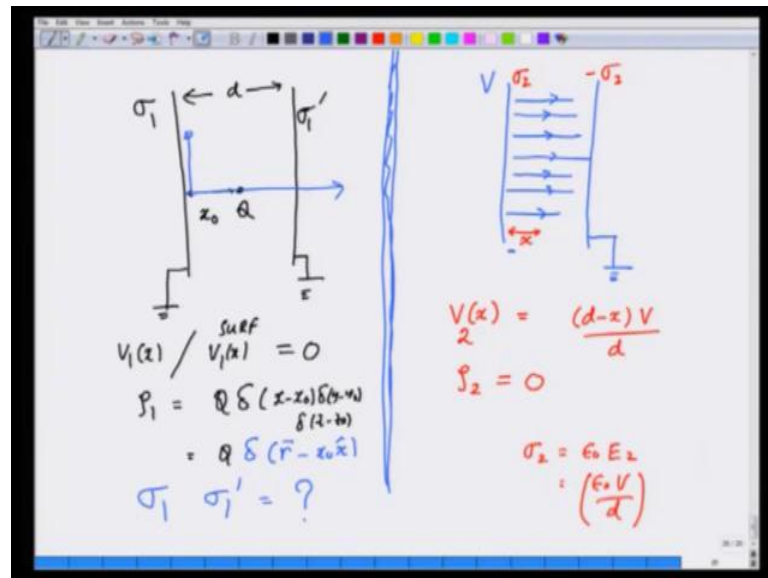 File Edit View Insert Actions Tools Help
σ₁ ← d → σ₁'
x₀ Q
V₁(x) / V₁(x) SURF = 0
ρ₁ = Q δ(x-x₀) δ(y-y₀)
δ(z-z₀)
= Q δ(r̄ - x₀x̂)
σ₁ σ₁' = ?
V σ₂ -σ₂
x
V₂(x) = (d-x) V / d
ρ₂ = 0
σ₂ = ε₀ E₂
= (ε₀ V / d)